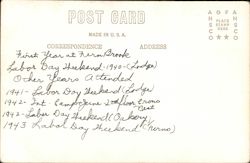 POST CARD
MADE IN U.S.A.
CORRESPONDENCE ADDRESS
ANSCO PLACE STAMP HERE ANSCO
First Year at Fern Brook
Labor Day Weekend-1940-(Lodge)
Other Years Attended
1941-Labor Day Weekend (Lodge)
1942-Int. 2nd floor
1942-Labor Day Weekend
1943 Labor Day Weekend